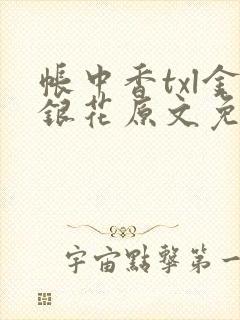 帳中香txl金
銀花原文免
宇宙點擊第一